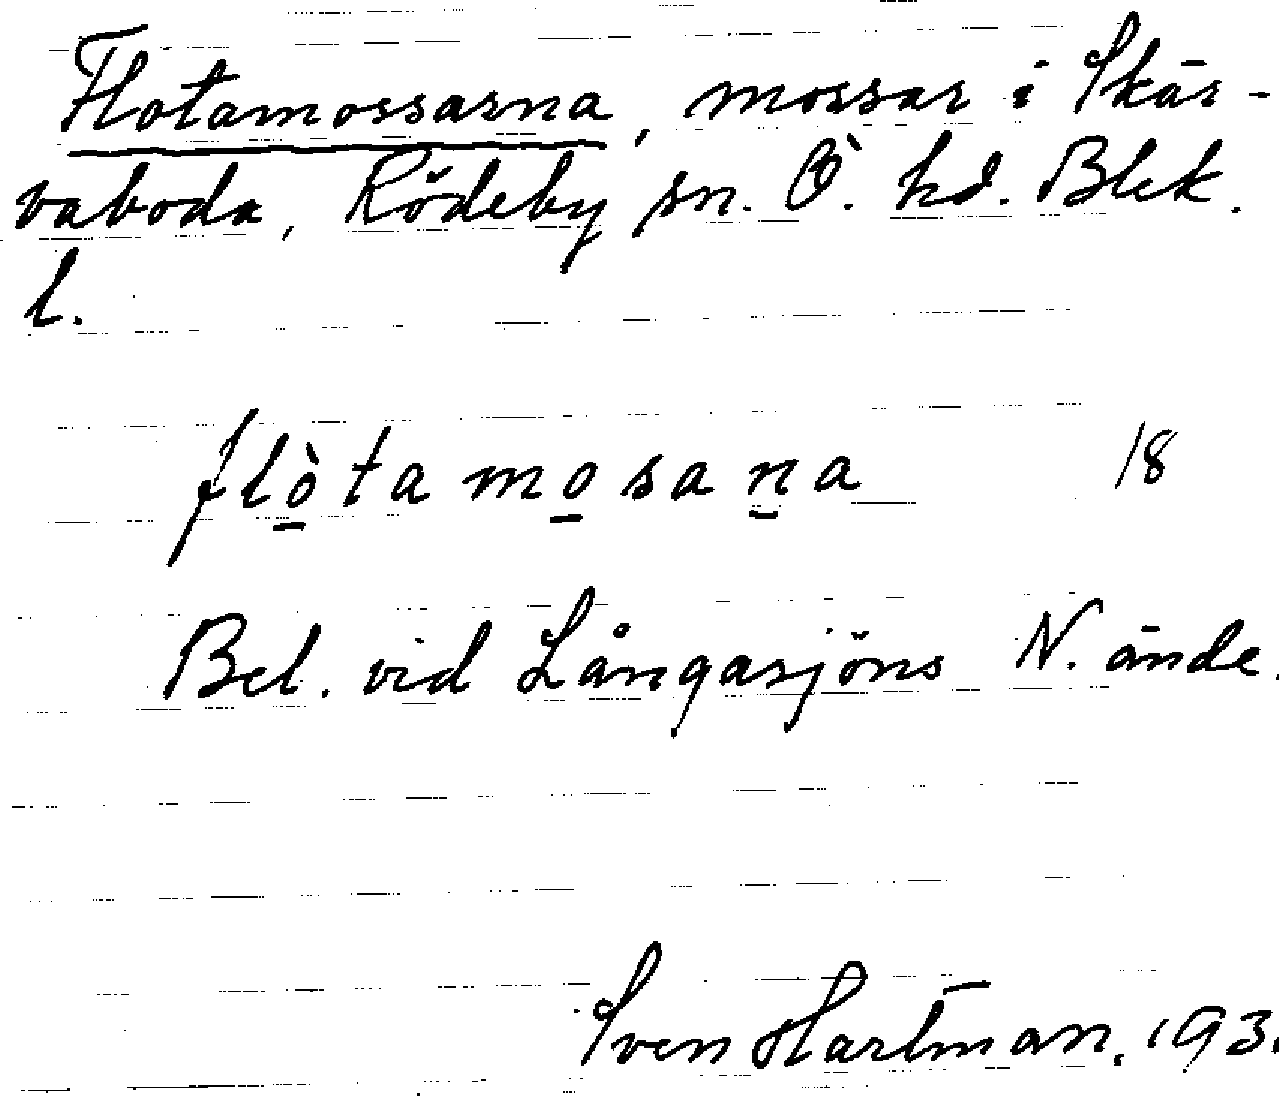 Flotamossarna, mossar i Skär-
vaboda, Rödeby sn. Ö. hd. Blek.
l.
flòtamosana 18
Bel. vid Långasjöns N. ände.
Sven Hartman. 193